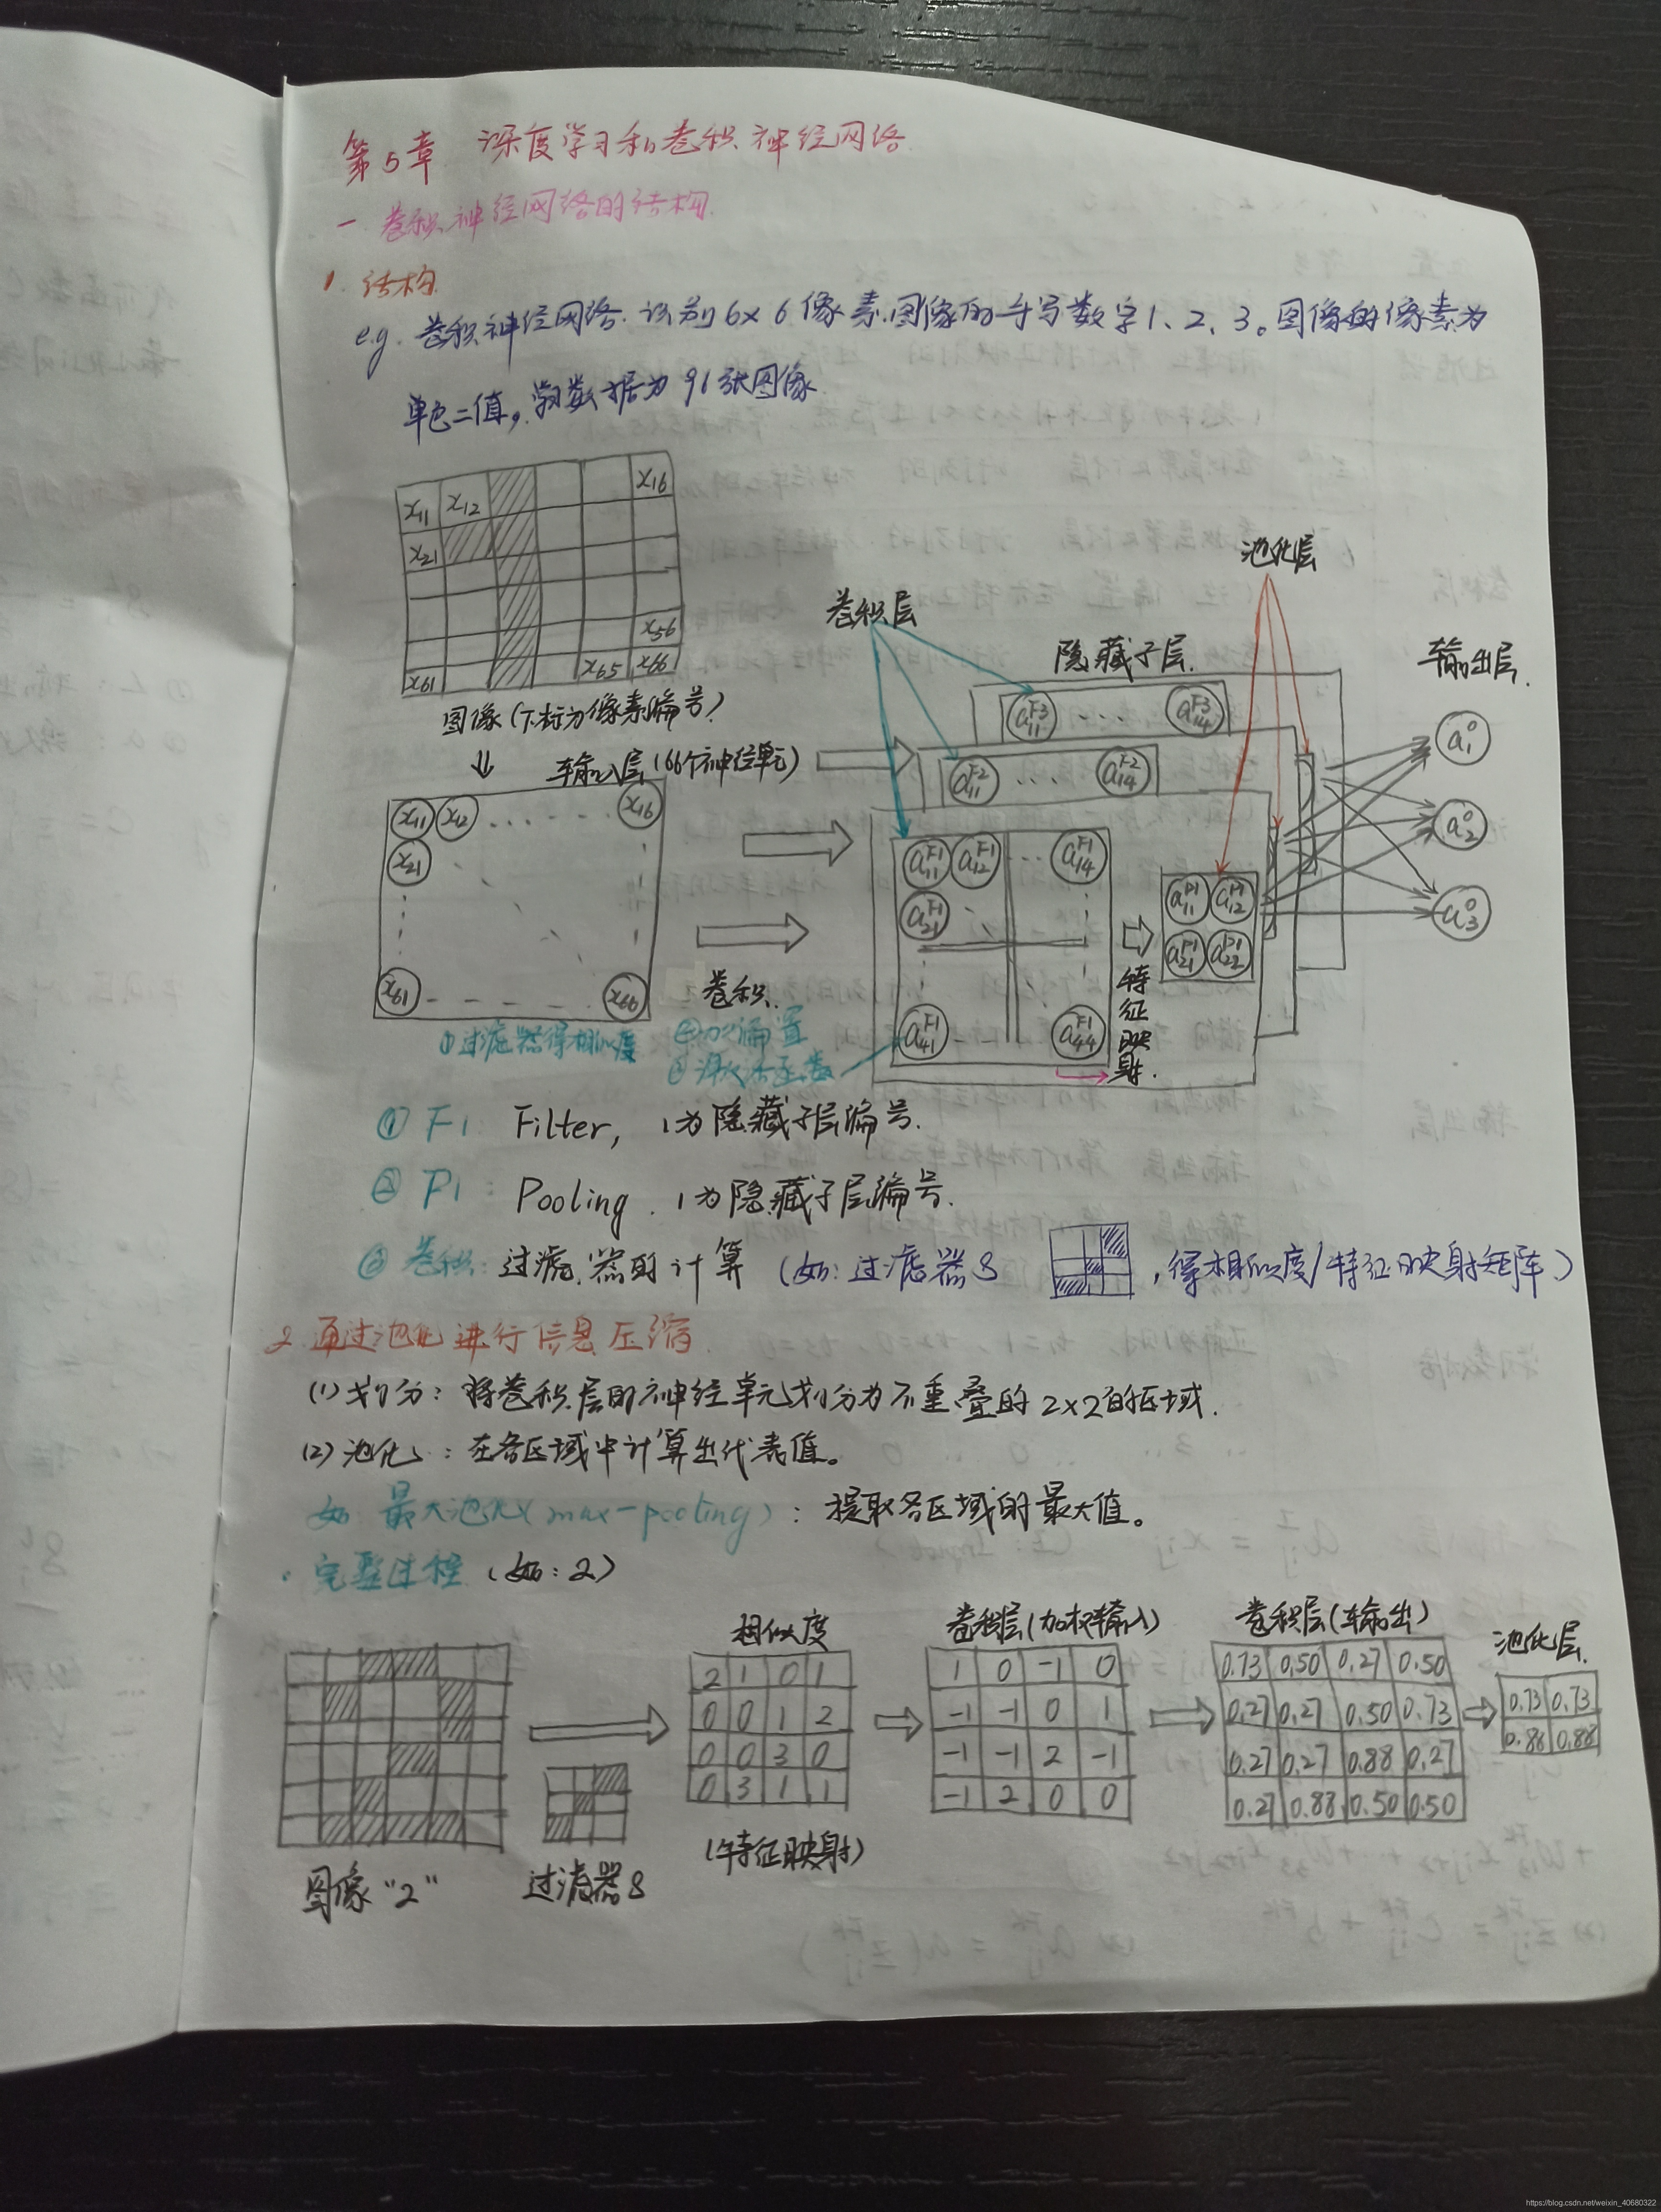 第5章 深度学习和卷积神经网络
一 卷积神经网络的结构
1. 结构
e.g. 卷积神经网络.识别6×6像素.图像的手写数字1、2、3。图像的像素为
单色二值,学数据为96张图像
x11 x12 x16
x21
x56
x61 x65 x66
图像(下标为像素编号)
⇓ 输入层(66个神经单元)
x11 x12 ...... x16
x21
x61 x66
①过滤器得相似度
卷积
②加偏置
③激活函数
卷积层
隐藏子层
池化层
输出层
a11^F3 ... a14^F3
a11^F2 ... a14^F2
a11^F1 a12^F1 ... a14^F1
a21^F1
a41^F1 a44^F1
特征映射
a11^P1 a12^P1
a21^P1 a22^P1
a1^0
a2^0
a3^0
① F1: Filter, 1为隐藏子层编号.
② P1: Pooling. 1为隐藏子层编号.
③ 卷积: 过滤器的计算 (如:过滤器S ,得相似度/特征映射矩阵)
2.通过池化进行信息压缩
(1)划分:将卷积层的神经单元划分为不重叠的2×2的区域.
(2)池化:在各区域中计算出代表值。
如 最大池化(max-pooling):提取各区域的最大值。
·完整过程 (如:2)
图像"2"
过滤器S
相似度
2 1 0 1
0 0 1 2
0 0 3 0
0 3 1 1
(特征映射)
卷积层(加权输入)
1 0 -1 0
-1 -1 0 1
-1 -1 2 -1
-1 2 0 0
卷积层(输出)
0.73 0.50 0.27 0.50
0.27 0.27 0.50 0.73
0.27 0.27 0.88 0.27
0.27 0.88 0.50 0.50
池化层
0.73 0.73
0.88 0.88
https://blog.csdn.net/weixin_40680322